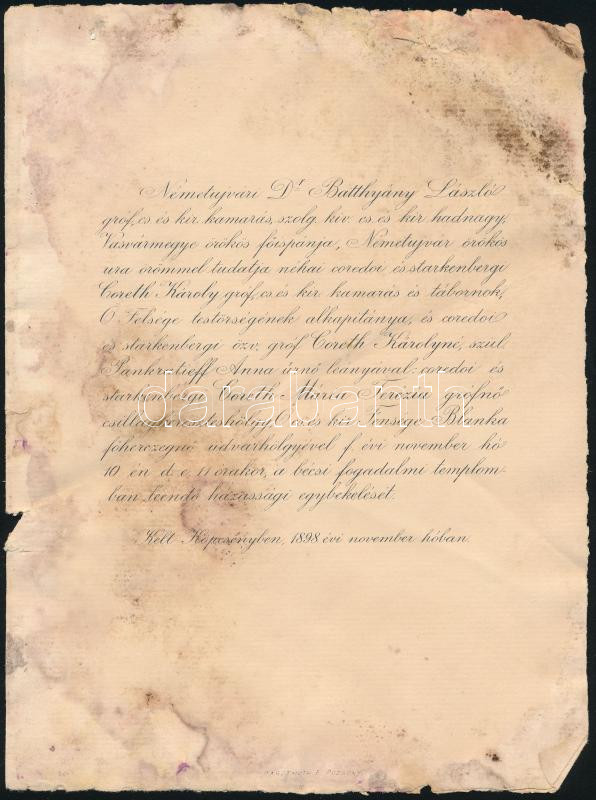 Németujvári Dr Batthyány László
gróf, cs és kir. kamarás, szolg. kiv. cs. és kir hadnagy,
Vasvármegye örökös főispánja, Németujvár örökös
ura örömmel tudatja néhai coredoi és starkenbergi
Coreth Károly gróf, cs. és kir kamarás és tábornok,
Ő Felsége testőrségének alkapitánya, és coredoi
és starkenbergi özv. gróf Coreth Károlyné, szül.
Pankratieff Anna úrnő leányával: coredoi és
starkenbergi Coreth Mária Terézia grófnő
csillagkeresztes hölgy, Ő cs. és kir. Fensége Blanka
főherczegnő udvarhölgyével f. évi november hó
10 én d. e. 11 órakor, a bécsi fogadalmi templom-
ban leendő házassági egybekelését.
Kelt Köpcsényben, 1898 évi november hóban.
darabanth
F. POZSONY